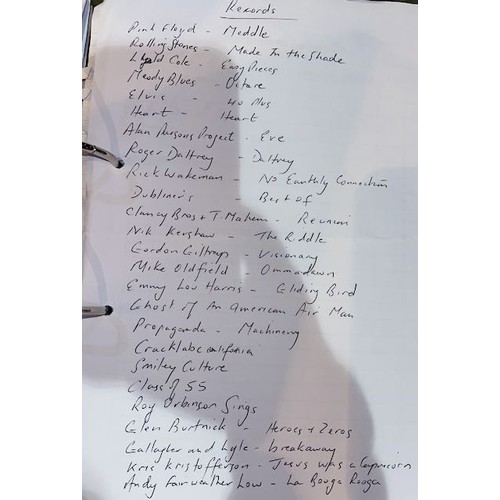 Records
Pink Floyd - Meddle
Rolling Stones - Made In the Shade
Lloyd Cole - Easy Pieces
Moody Blues - Octave
Elvis - 40
Heart - Heart
Alan Parsons Project - Eve
Roger Daltrey - Daltrey
Rick Wakeman - No Earthly Connection
Dubliner's - Best of
Clancy Bros + T Makem - Reunion
Nik Kershaw - The Riddle
Gordon Giltrap - Visionary
Mike Oldfield - Ommadawn
Emmy Lou Harris - Gliding Bird
Ghost of An American Air Man
Propaganda - Machinery
California
Smiley Culture
Class of 55
Roy Orbinson Sings
Glen Burtnick - Heroes + Zeros
Gallagher and Lyle - breakaway
Kris Kristofferson - Jesus was a Capricorn
Andy Fairweather Low - La Booga Rooga